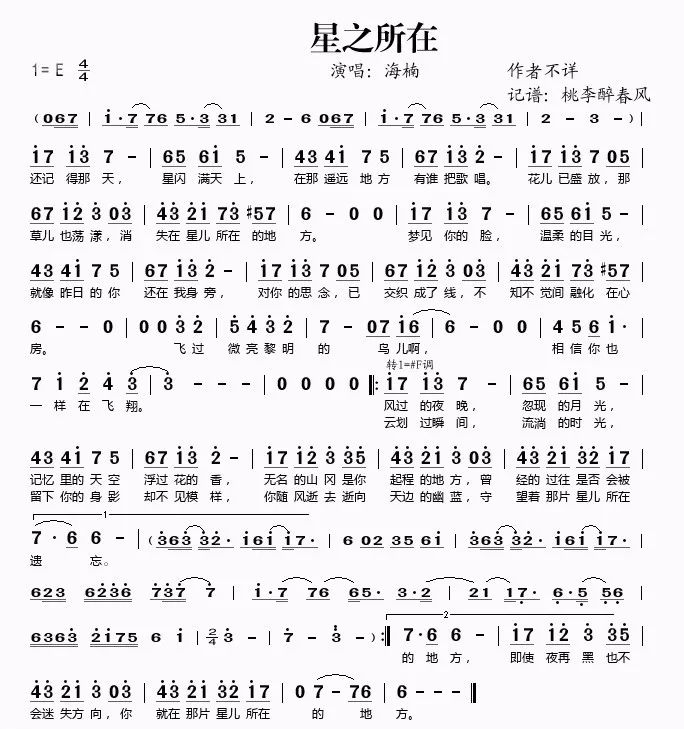 星之所在
1= E 4/4
演唱：海楠
作者不详
记谱：桃李醉春风
( 067 | 1·7 76 5·3 31 | 2 - 6 067 | 1·7 76 5·3 31 | 2 - 3 - )
17 13 7 - | 65 61 5 - | 43 41 7 5 | 67 13 2 - | 17 13 7 05 |
还记 得那 天， 星闪 满天 上， 在那 遥远 地方 有谁 把歌 唱。 花儿 已盛 放，那
67 12 3 03 | 43 21 73 #57 | 6 - 0 0 | 17 13 7 - | 65 61 5 - |
草儿 也荡 漾，消 失在 星儿 所在 的地 方。 梦见 你的 脸， 温柔 的目 光，
43 41 7 5 | 67 13 2 - | 17 13 7 05 | 67 12 3 03 | 43 21 73 #57 |
就像 昨日 的 你 还在 我身 旁， 对你 的思 念，已 交织 成了 线，不 知不 觉间 融化 在心
6 - - 0 | 0 0 3 2 | 5 43 2 3 | 7 - 07 16 | 6 - 0 0 | 4 5 6 1· |
房。 飞过 微亮黎明 的 鸟儿啊， 相信你也
转1=#F调
7 1 2 4 3 | 3 - - - | 0 0 0 0 ‖: 17 13 7 - | 65 61 5 - |
一 样 在 飞 翔。 风过 的夜 晚， 忽现 的月 光，
云划 过瞬 间， 流淌 的时 光，
43 41 7 5 | 67 13 2 - | 17 12 3 35 | 43 21 3 03 | 43 21 32 17 |
记忆 里的 天 空 浮过 花的 香， 无名 的山 冈 是你 起程 的地 方，曾 经的 过往 是否 会被
留下 你的 身 影 却不 见模 样， 你随 风逝 去 逝向 天边 的幽 蓝，守 望着 那片 星儿 所在
1
7·6 6 - | (363 32· 161 17· | 6 02 35 61 | 363 32· 161 17· |
遗 忘。
623 6236 737 7 | 1·7 76 65· 3·2 | 21 17· 6·5 56 |
6363 2175 6 1 | 2/4 3 - | 7 - 3 ) :‖ 2 7·6 6 - | 17 12 3 35 |
的 地方， 即使 夜再 黑 也不
43 21 3 03 | 43 21 32 17 | 0 7 - 76 | 6 - - - ‖
会迷 失方 向，你 就在 那片 星儿 所在 的 地 方。